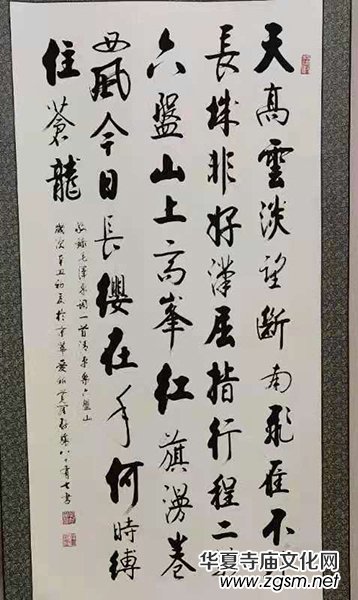 天高雲淡望斷南飛雁不到
長城非好漢屈指行程二萬
六盤山上高峯紅旗漫卷
西風今日長纓在手何時縛
住蒼龍
敬録毛澤東詞一首清平樂六盤山
歲次辛丑初夏於京華愛新覺羅
华夏寺庙文化网
www.zgsm.net